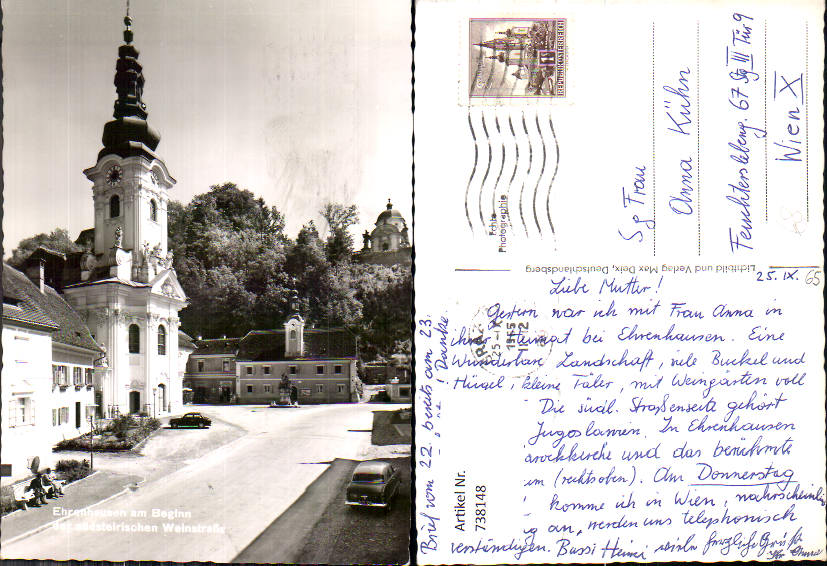 Ehrenhausen am Beginn
der südsteirischen Weinstraße
REPUBLIK ÖSTERREICH
Echte
Photographie
Sg Frau
Anna Kühn
Feuchterslebeng. 67 Stg III Tür 9
Wien X
Lichtbild und Verlag Max Deix, Deutschlandsberg
25. IX. 65
Liebe Mutter!
Gestern war ich mit Frau Anna in
Heimat bei Ehrenhausen. Eine
Wunderbare Landschaft, viele Buckel und
Hügel, kleine Täler, mit Weingärten voll
Die südl. Straßenseite gehört
Jugoslawien. In Ehrenhausen
arockkirche und das berühmte
um (rechts oben). Am Donnerstag
komme ich in Wien, wahrscheinlich
g an, werden uns telephonisch
verständigen. Bussi Heini viele herzliche Grüße
Ihr Anna
Brief vom 22. bereits am 23.
Danke
Artikel Nr.
738148